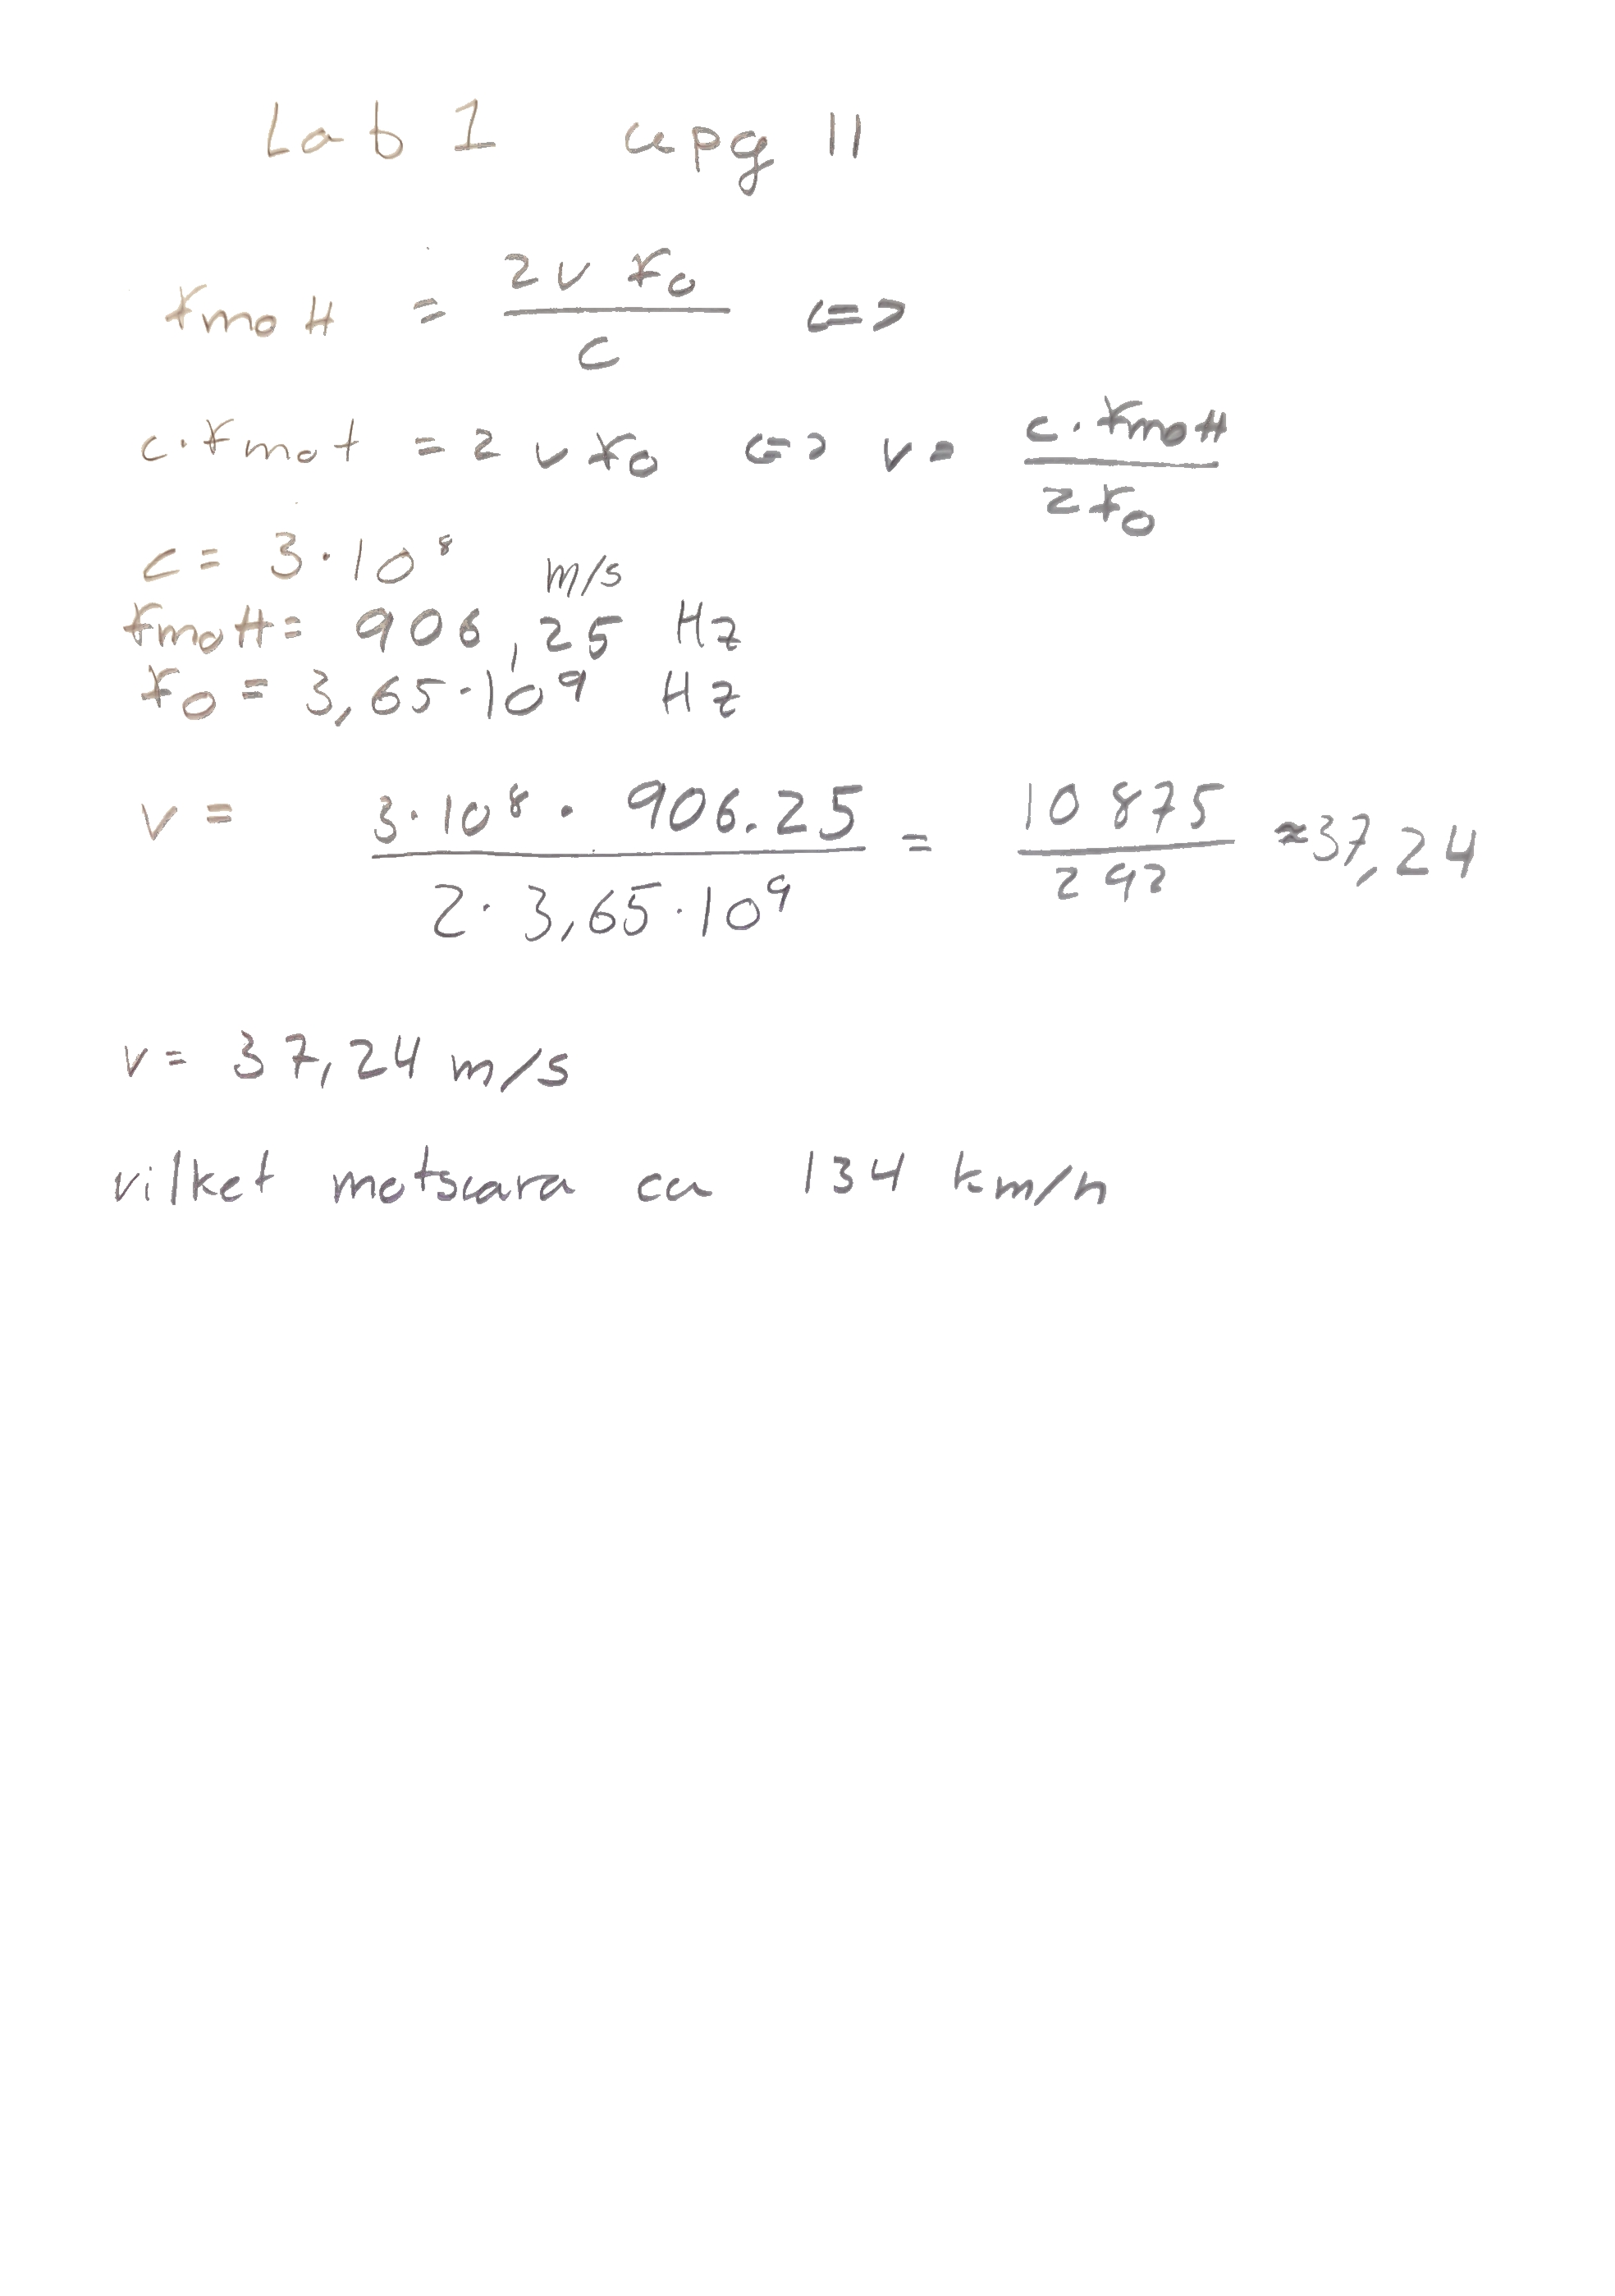 Lab 1 upg 11
fmott = 2v f0 / c <=>
c·fmot = 2 v f0 <=> v = c·fmott / 2f0
c = 3·10⁸ m/s
fmott = 906,25 Hz
f0 = 3,65·10⁹ Hz
v = 3·10⁸ · 906.25 / 2·3,65·10⁹ = 10 875 / 292 ≈37,24
v = 37,24 m/s
vilket motsvara ca 134 km/h